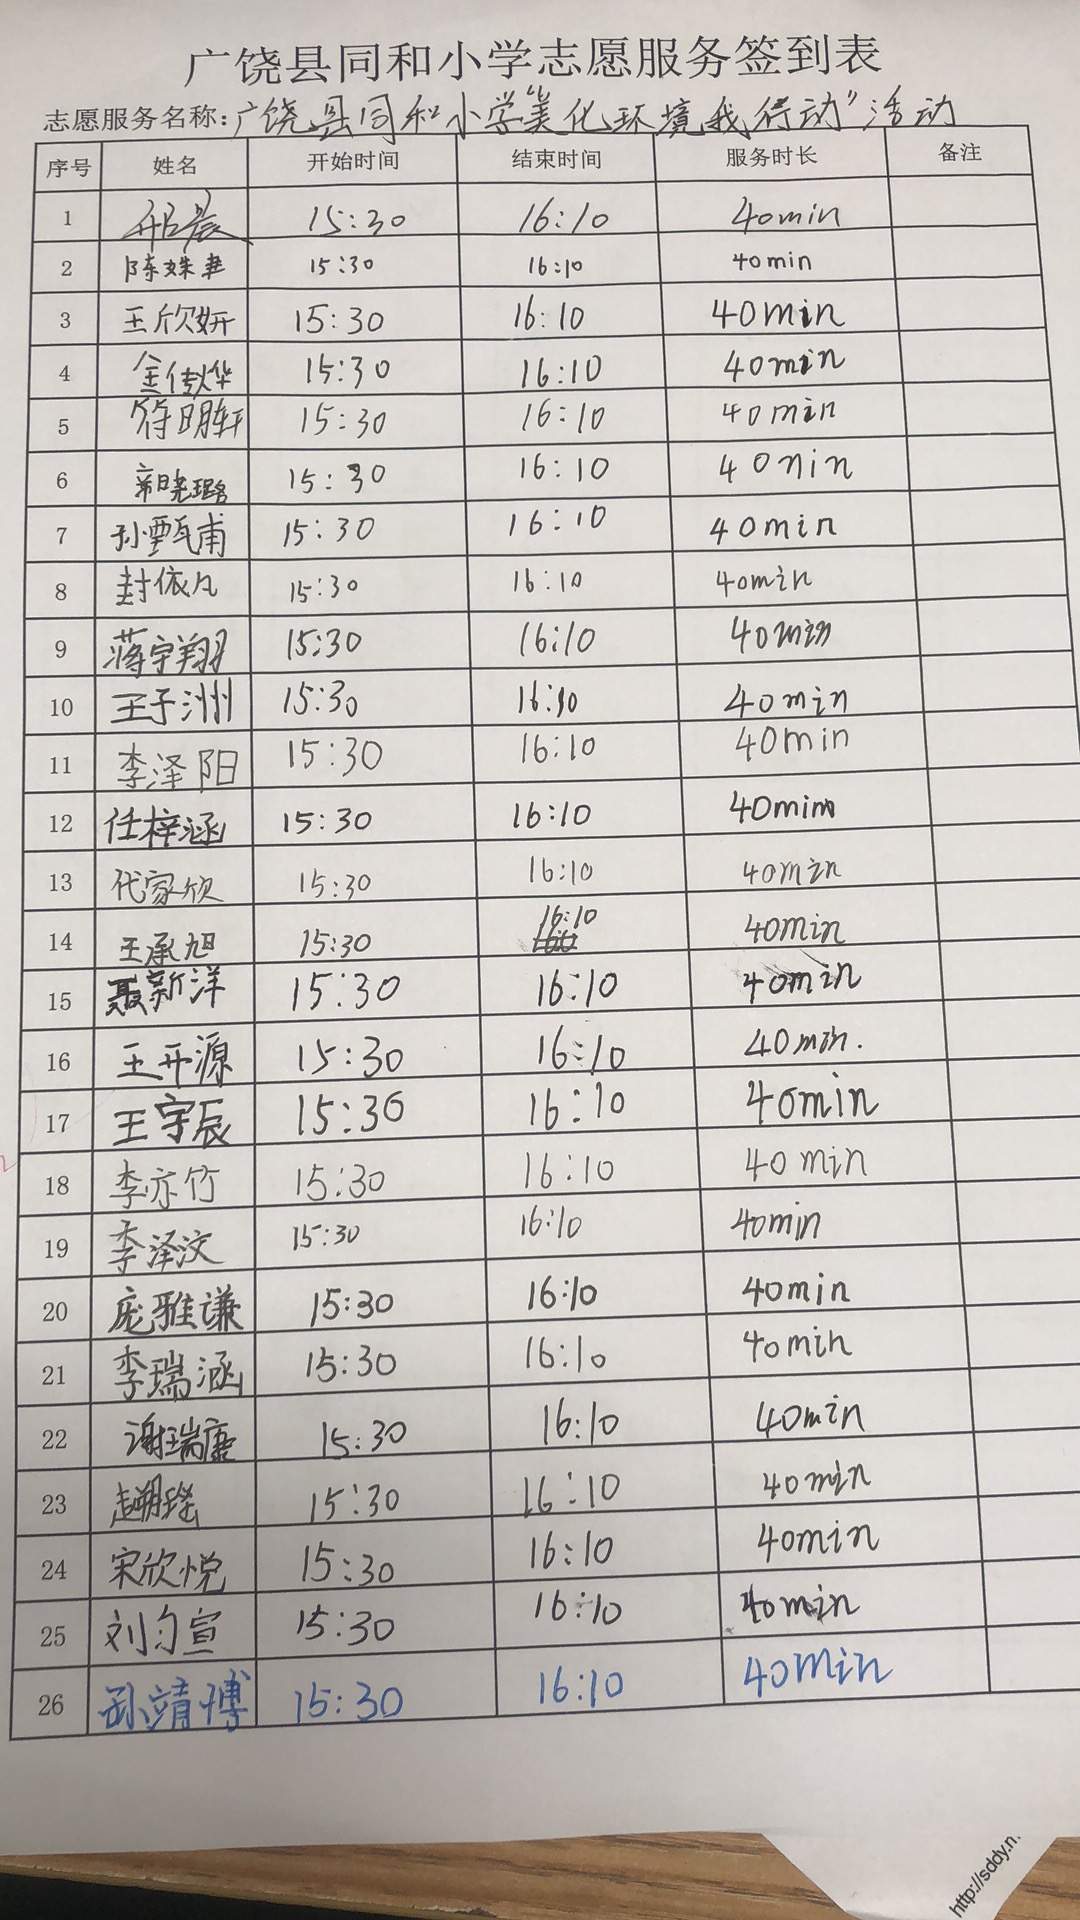 广饶县同和小学志愿服务签到表
志愿服务名称:广饶县同和小学"美化环境我行动"活动
序号 姓名 开始时间 结束时间 服务时长 备注
1 邢晨 15:30 16:10 40min
2 陈姝聿 15:30 16:10 40min
3 王欣妍 15:30 16:10 40min
4 金传烨 15:30 16:10 40min
5 符明轩 15:30 16:10 40min
6 常晓璐 15:30 16:10 40nin
7 孙甄甫 15:30 16:10 40min
8 封依凡 15:30 16:10 40min
9 蒋宇翔 15:30 16:10 40min
10 王子洲 15:30 16:10 40min
11 李泽阳 15:30 16:10 40min
12 任梓涵 15:30 16:10 40min
13 代家欣 15:30 16:10 40min
14 王承旭 15:30 16:10 40min
15 聂新洋 15:30 16:10 40min
16 王开源 15:30 16:10 40min.
17 王宇辰 15:30 16:10 40min
18 李亦竹 15:30 16:10 40min
19 李泽汶 15:30 16:10 40min
20 庞雅谦 15:30 16:10 40min
21 李瑞涵 15:30 16:10 40min
22 谢瑞康 15:30 16:10 40min
23 赵翊瑶 15:30 16:10 40min
24 宋欣悦 15:30 16:10 40min
25 刘匀宣 15:30 16:10 40min
26 孙靖博 15:30 16:10 40min
http://sddy.n